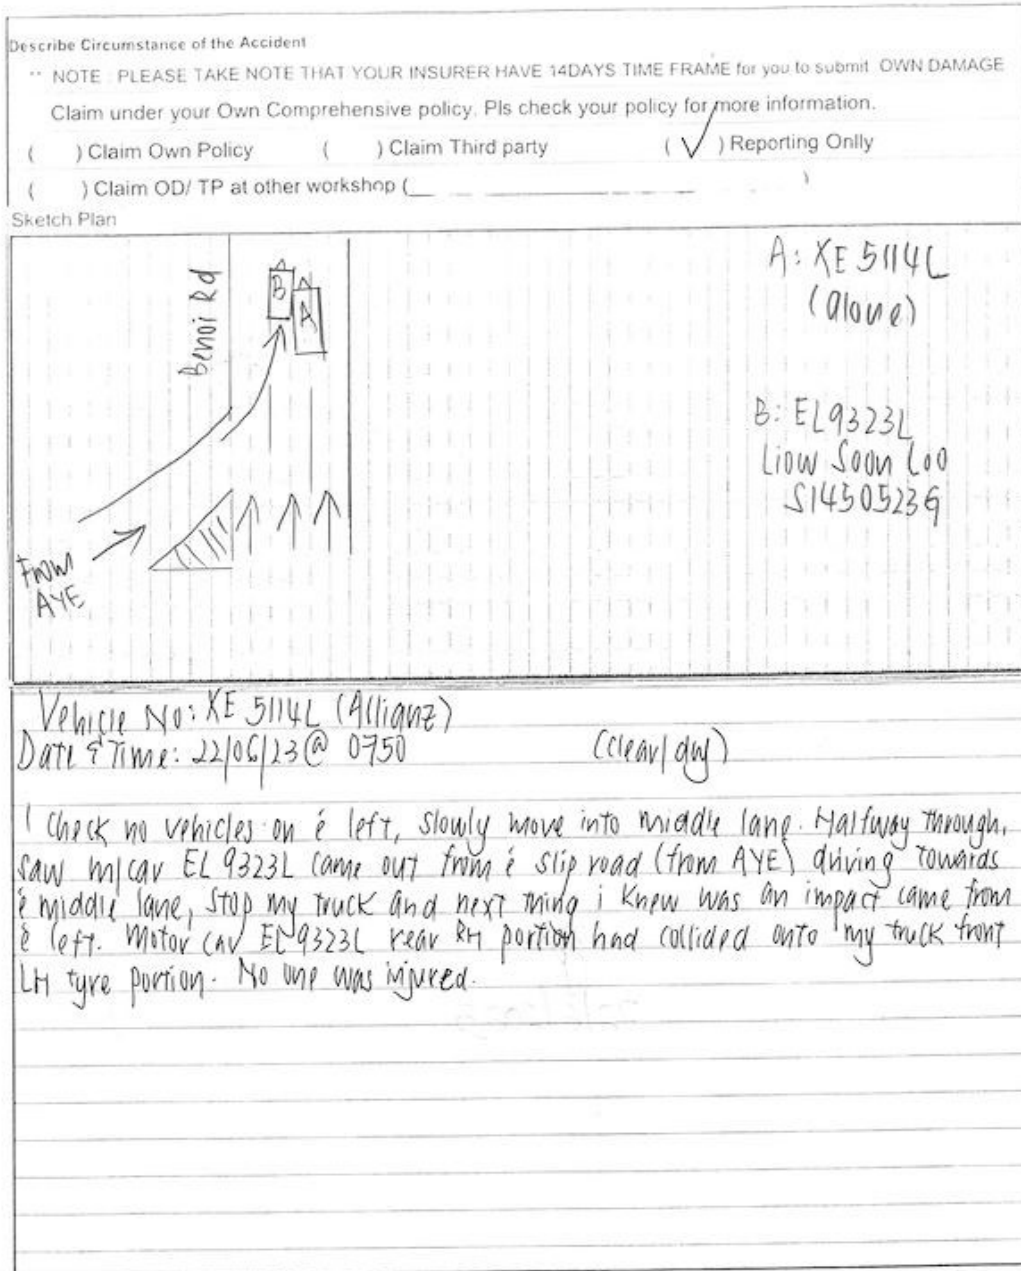 Describe Circumstance of the Accident
** NOTE : PLEASE TAKE NOTE THAT YOUR INSURER HAVE 14DAYS TIME FRAME for you to submit OWN DAMAGE
Claim under your Own Comprehensive policy. Pls check your policy for more information.
( ) Claim Own Policy ( ) Claim Third party ( ✓ ) Reporting Onlly
( ) Claim OD/ TP at other workshop ( )
Sketch Plan
Benoi Rd
B
A
From
AYE
A: XE 5114L
(alone)
B: EL9323L
Liow Soon Loo
S1450523G
Vehicle No: XE 5114L (Allianz)
Date & Time: 22/06/23 @ 0750 (clear/dry)
I check no vehicles on è left, slowly move into middle lane. Halfway through,
saw m/car EL 9323L came out from è slip road (from AYE) driving towards
è middle lane, stop my truck and next thing i knew was an impact came from
è left. Motor car EL 9323L rear RH portion had collided onto my truck front
LH tyre portion. No one was injured.